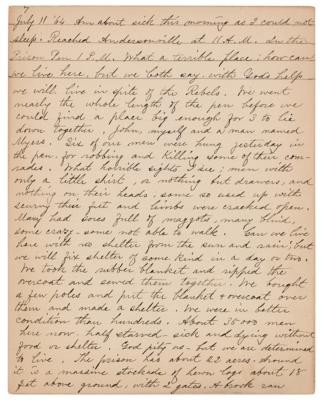 7
July 11 '64. Am about sick this morning as I could not
sleep. Reached Andersonville at 11 A.M. In the
Prison Pen 1 P.M. What a terrible place; how can
we live here, but we both say with Gods help
we will live in spite of the Rebels. We went
nearly the whole length of the pen before we
could find a place big enough for 3 to lie
down together, John, myself and a man named
Myers. Six of our men were hung yesterday in
the pen, for robbing and killing some of their com-
rades. What horrible sights I see; men with
only a little shirt, or nothing but drawers, and
nothing on their heads, some so used up with
scurvy their feet and limbs were cracked open.
Many had sores full of maggots, many blind,
some crazy - some not able to walk. Can we live
here with no shelter from the sun and rain; but
we will fix shelter of some kind in a day or two.
We took the rubber blanket and ripped the
overcoat and sewed them together. We bought
a few poles and put the blanket & overcoat over
them and made a shelter. We were in better
condition than hundreds. About 35000 men
here now. half starved - sick and dying without
food or shelter. God pity us - but we are determined
to live. The prison has about 22 acres. around
it is a massive stockade of hewn logs about 18
feet above ground, with 2 gates. A brook ran